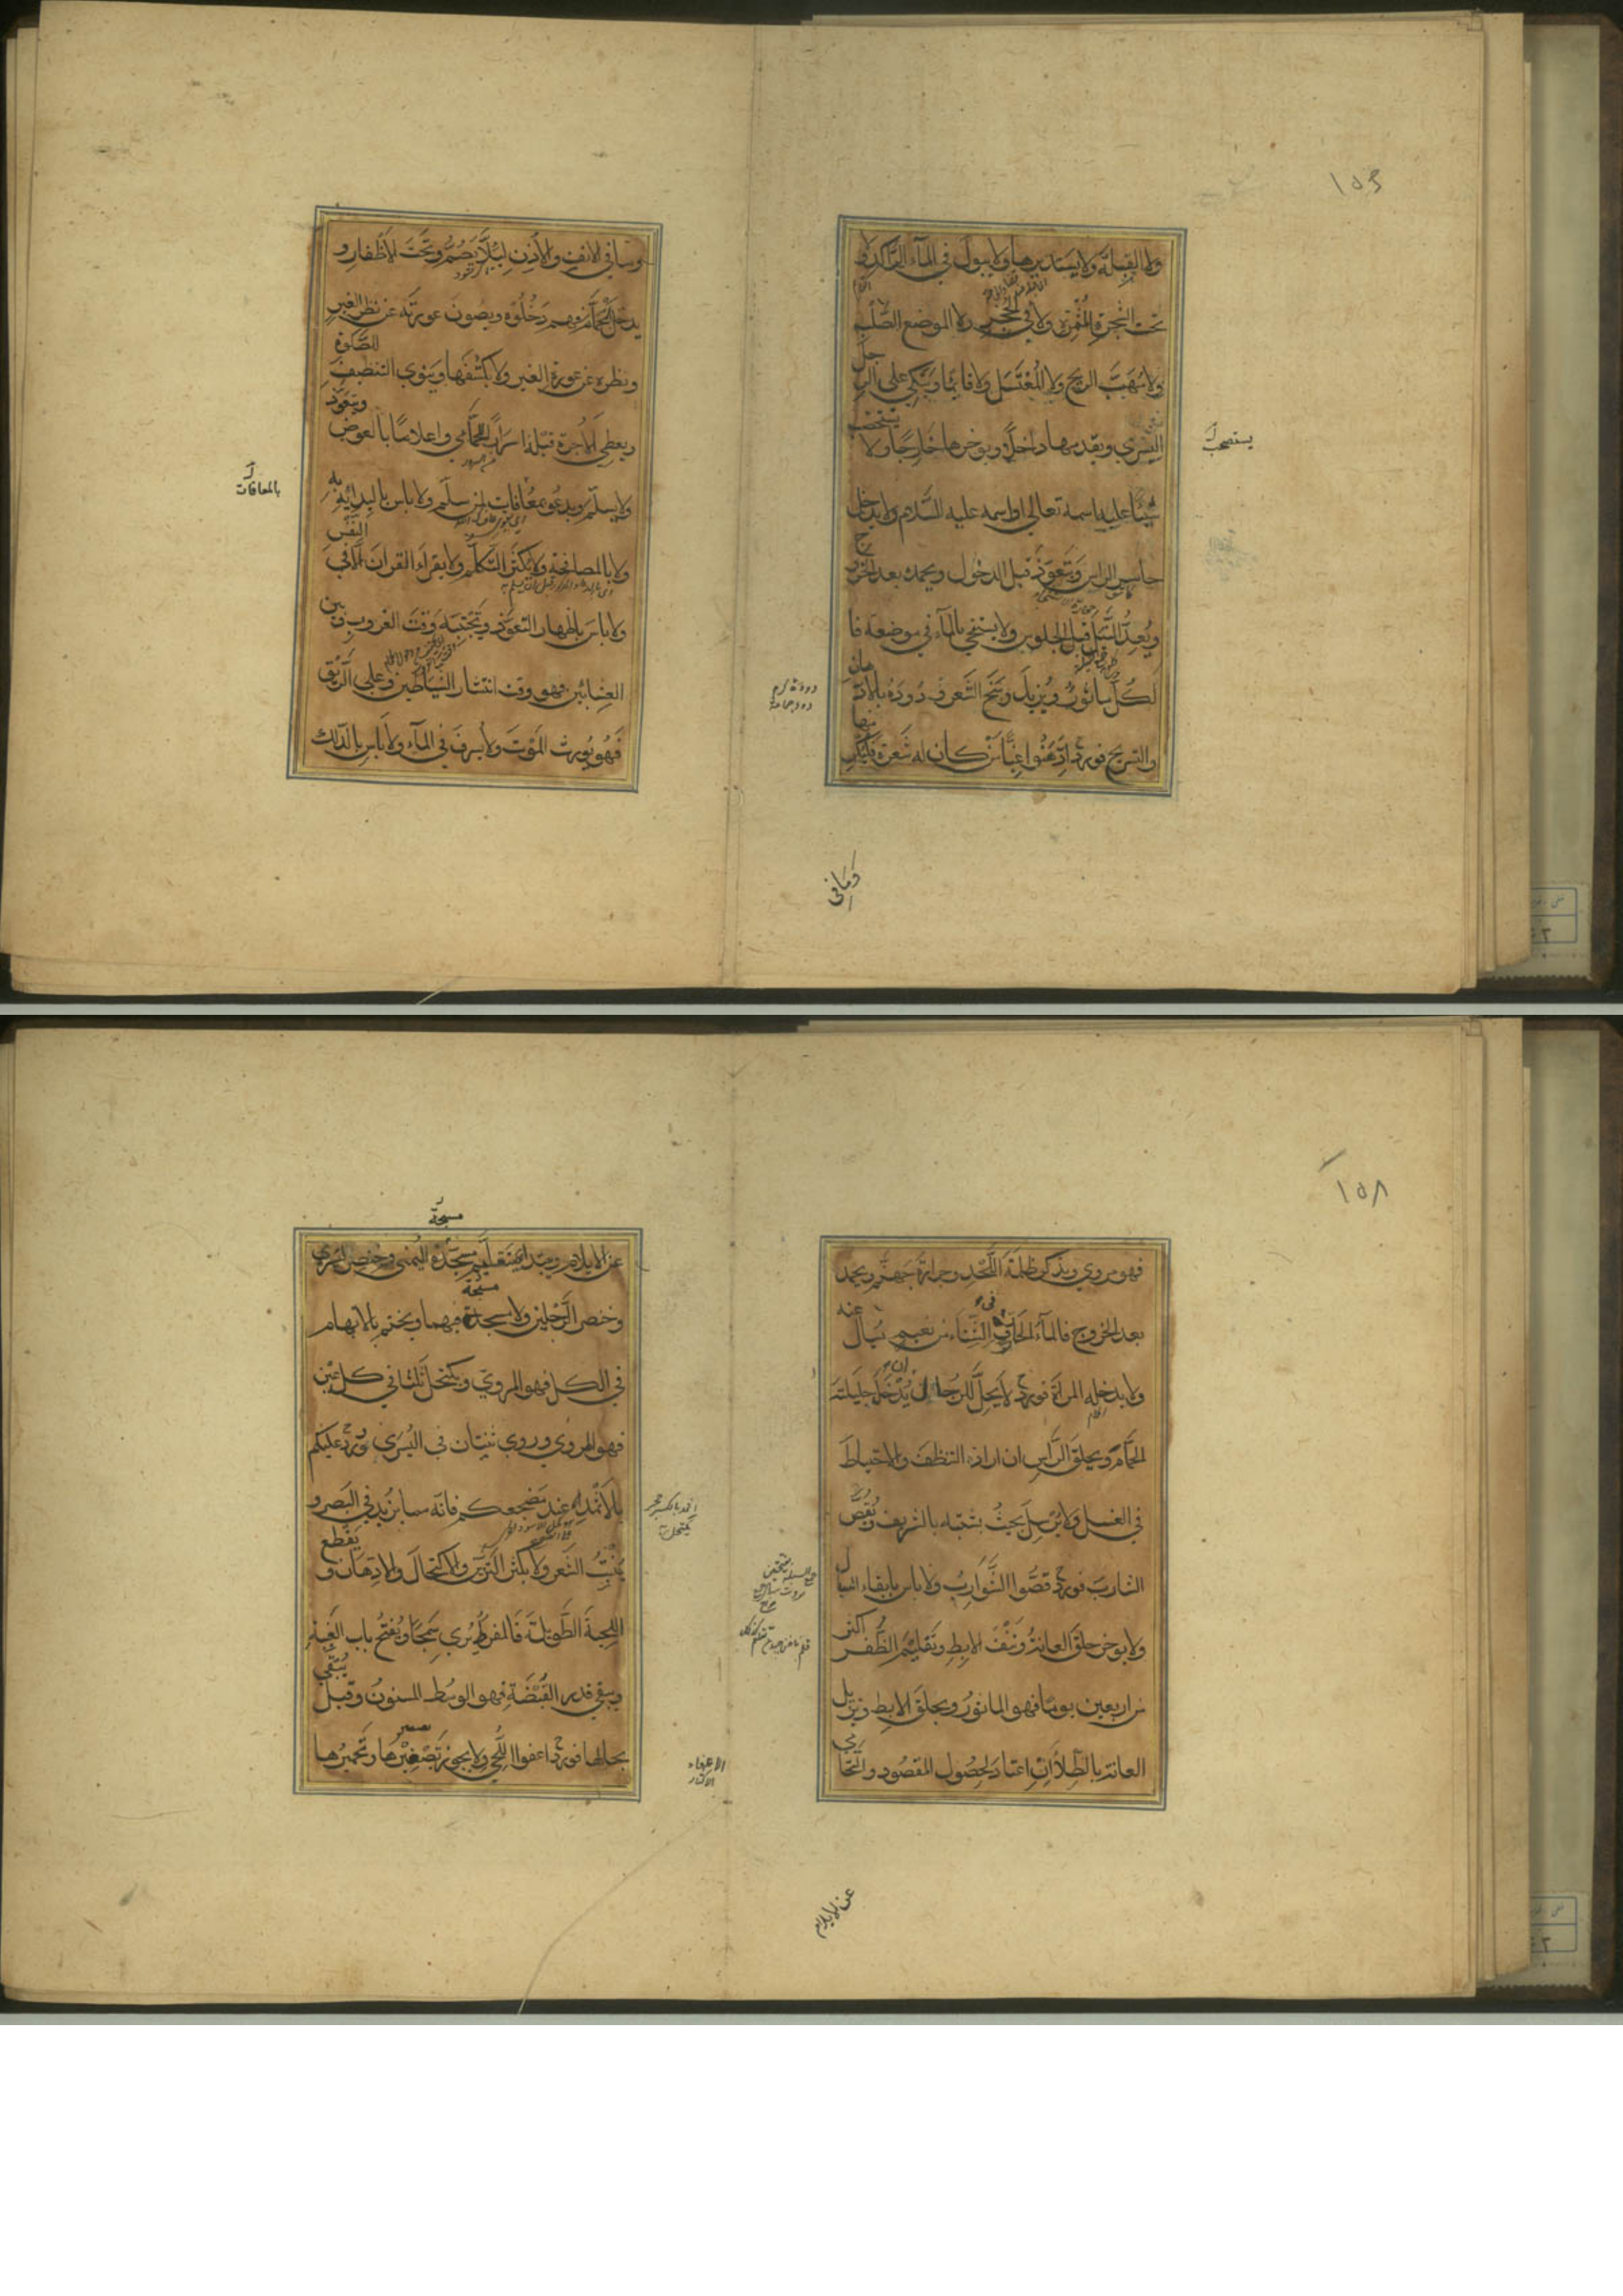 ولا القبلة ولا يستدبرها ولا يبول في المآء الراكد ولا
تحت الشجرة المثمرة ولا في الحجر ولا الموضع الصلب
ولا مهب الريح ولا المغتسل ولا قايما ويتكي على الرجل
اليسرى ويقدمها داخلا ويوخرها خارجا ولا يستصحب
شيئا عليه اسمه تعالى او اسمه عليه السلام ولا يدخل
حاسر الراس ويتعوذ قبل الدخول ويحمده بعد الخروج
ويعد النبل قبل الجلوس ولا يستنجي بالمآء في موضعه فا
لكل مأثور ويزيل وسخ الشعر فورد بالادهان
والتسريح فورد ادهنوا غبا من كان له شعرة فليكرمها
يستصحب
وما في
وما في الانف والاذن لئلا يصم وتحت الاظفار و
يدخل الحمام فهم دخلوه ويصون عورته عن نظر الغير
ونظره عن عورة الغير ولا يكشفها وينوي التنظيف للصلوة
ويعطي الاجرة قبله اسرارا للحمامي واعلاما بالعوض ويتعوذ
ولا يسلم ويدعو بمعافات لمن سلم ولا باس بالبداية به
ولا بالمصافحة ولا يكثر التكلم ولا يقراء القران الا في النفس
ولا باس باظهار التعوذ ويجتنبه وقت الغروب وبين
العشائين فهو وقت انتشار الشياطين وعلى الريق
فهو يورث الموت ولا يسرف في المآء ولا باس بالدلك
بالمعافات
١٥٨
فهو مروي ويذكر ظلمة اللحد وحرارة جهنم ويحمد
بعد الخروج فالمآء الحار في الشتاء من نعيم يسال عنه
ولا يدخله المراة فورد لا يحل للرجل ان يدخل حليلته
الحمام ويحلق الراس ان اراد التنظف والاحتياط
في الغسل ولا يرسل بحيث يتشبه بالشريف ويقص
الشارب فورد قصوا الشوارب ولا باس بابقاء السبال
ولا يوخر حلق العانة ونتف الابط وتقليم الظفر اكثر
من اربعين يوما فهو الماثور ويحلق الابط ويزيل
العانة بالطلا ان اعتاد لحصول المقصود والتحا
عن الايلام
مسبحة
عن الايلام ويبتدا في تقليم مسبحة اليمنى وخنصر اليسرى
وخنصر الرجلين ولا مسبحة فيهما ويختم بالابهام
في الكل فهو المروي ويكتحل ثلثا في كل عين
فهو المروي وروي ثنتان في اليسرى وورد عليكم
بالاثمد عند مضجعكم فانه مما يزيد في البصر و
ينبت الشعر ولا يكثر التزين والاكتحال والادهان ويقطع
اللحية الطويلة فالمفرط يرى سمجا ويفتح باب الغيبة
ويبقى قدر القبضة فهو الوسط المسنون وقيل يبقي
بحالها فورد اعفوا اللحي ولا يجوز تصغيرها وتحميرها
الاعفاء
الاكثار